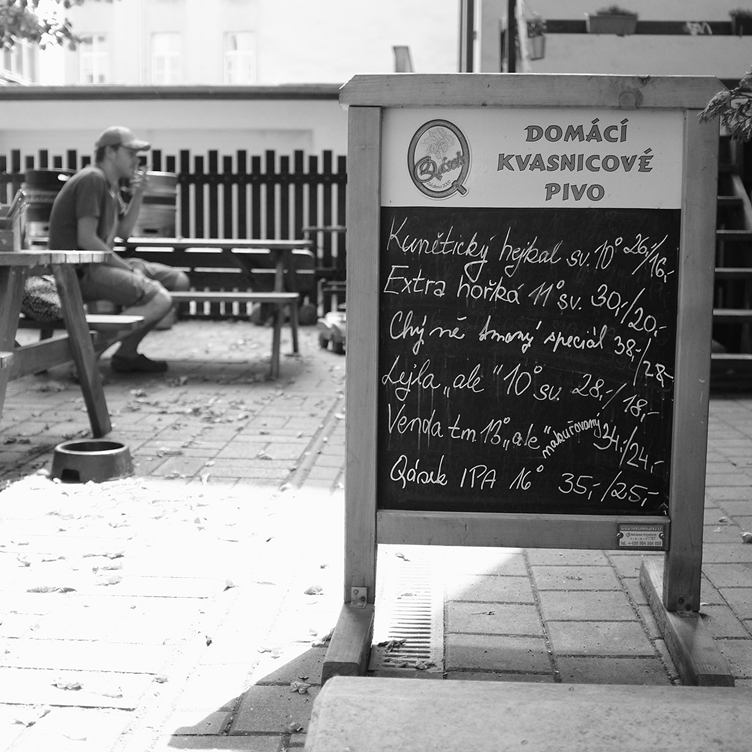 Qásek
DOMÁCÍ
KVASNICOVÉ
PIVO
Kunětický hejkal sv. 10° 26,-/16,-
Extra hořká 11° sv. 30,-/20,-
speciál 38,-/28,-
Lejla „ale" 10° sv. 28,-/18,-
Venda tm 13° „ale" nakuřovaný 34,-/24,-
Qásek IPA 16° 35,-/25,-